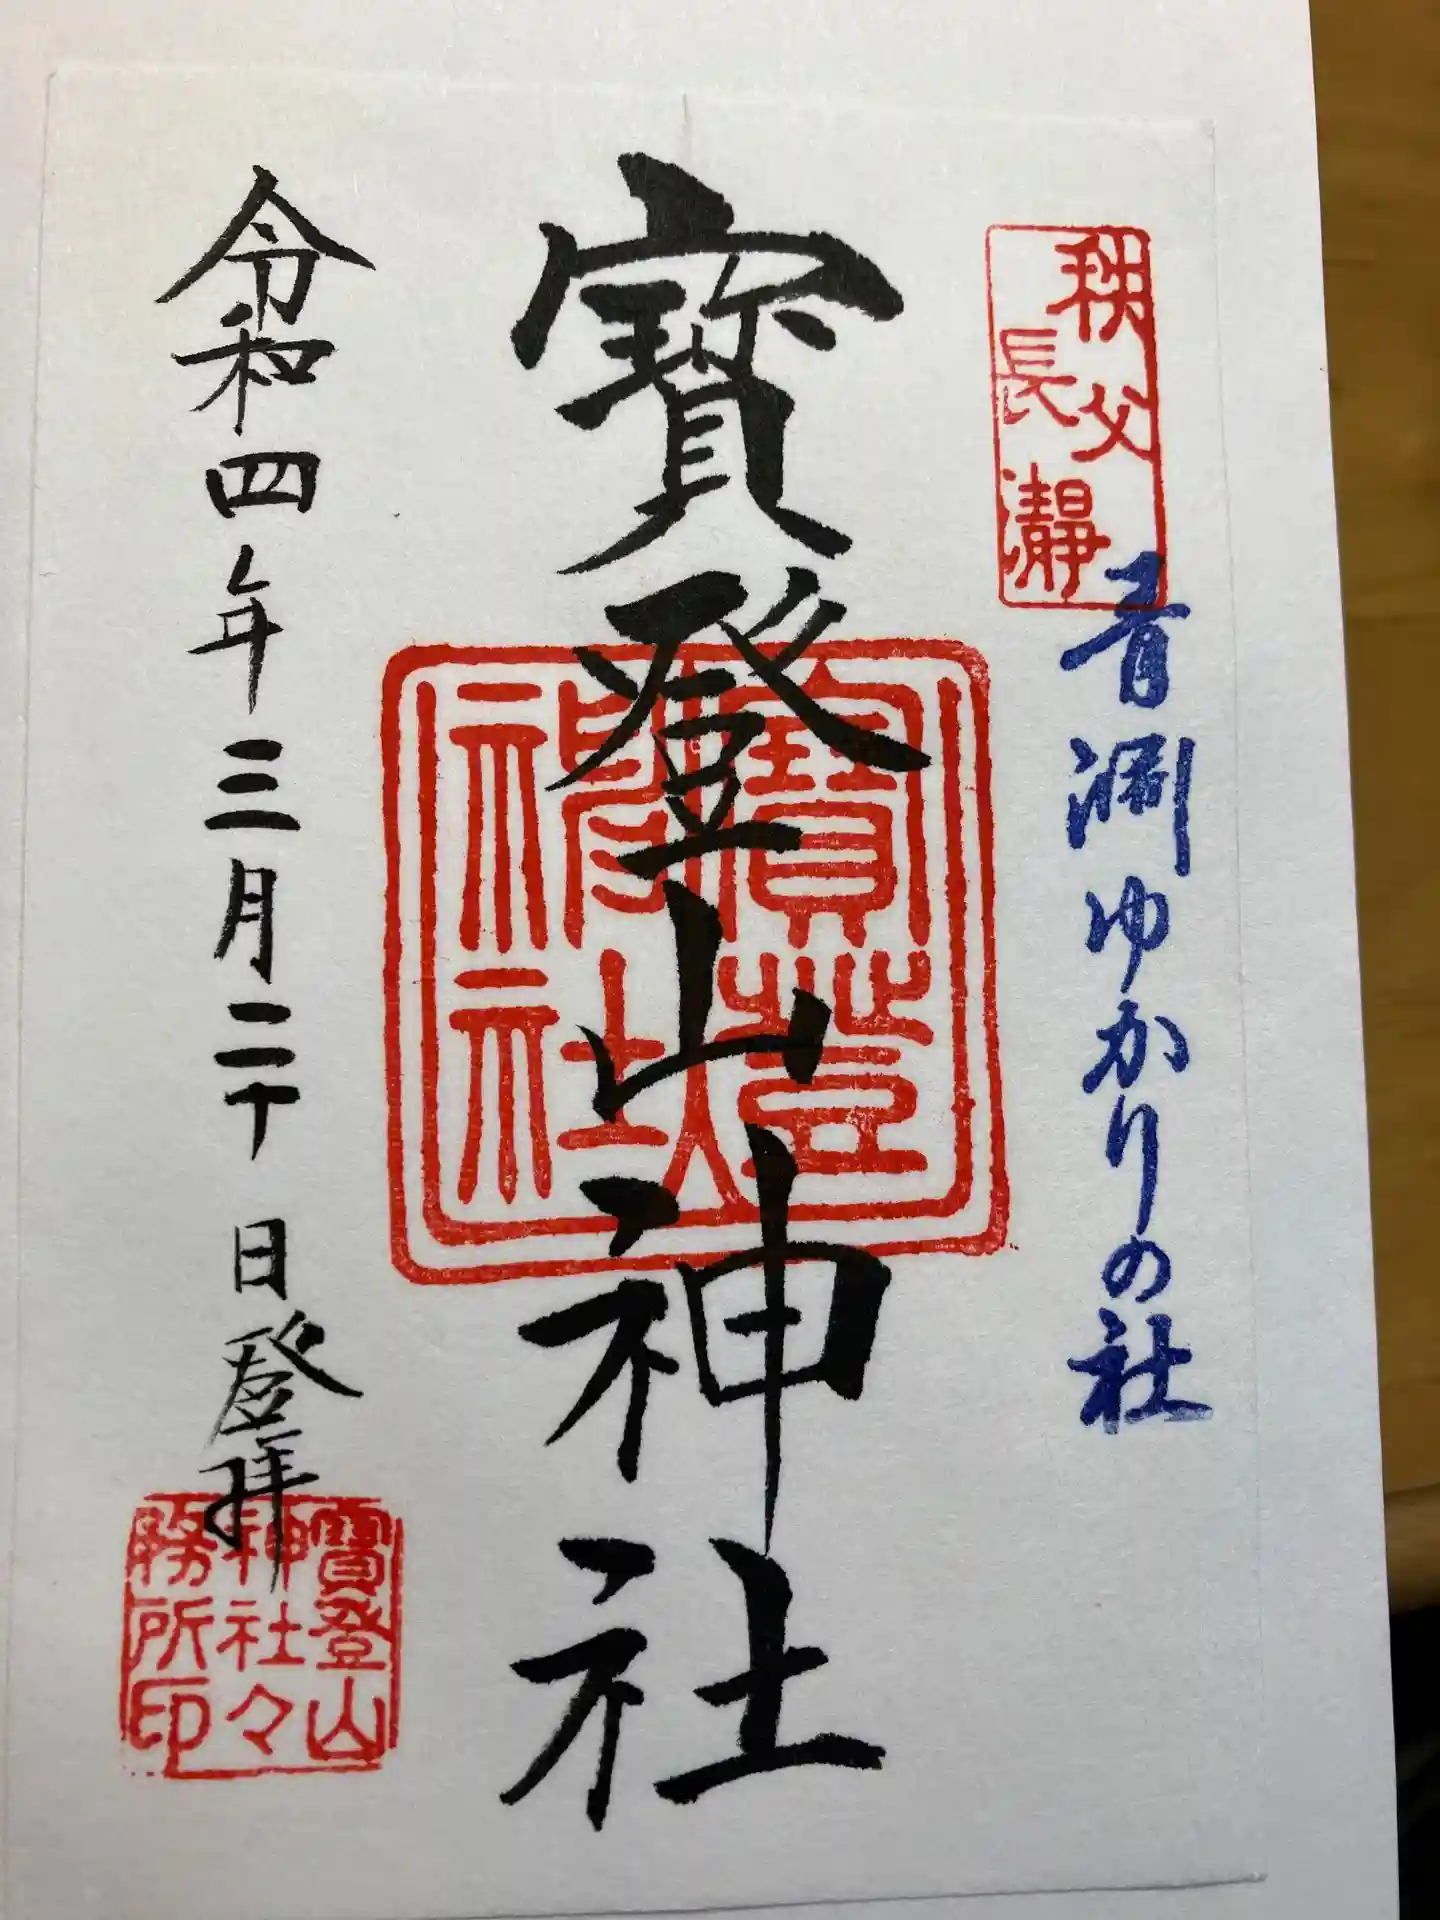 秩父
長瀞
青淵ゆかりの社
寶登山神社
寶登山
神社
令和四年三月二十日登拝
寶登山
神社々
務所印